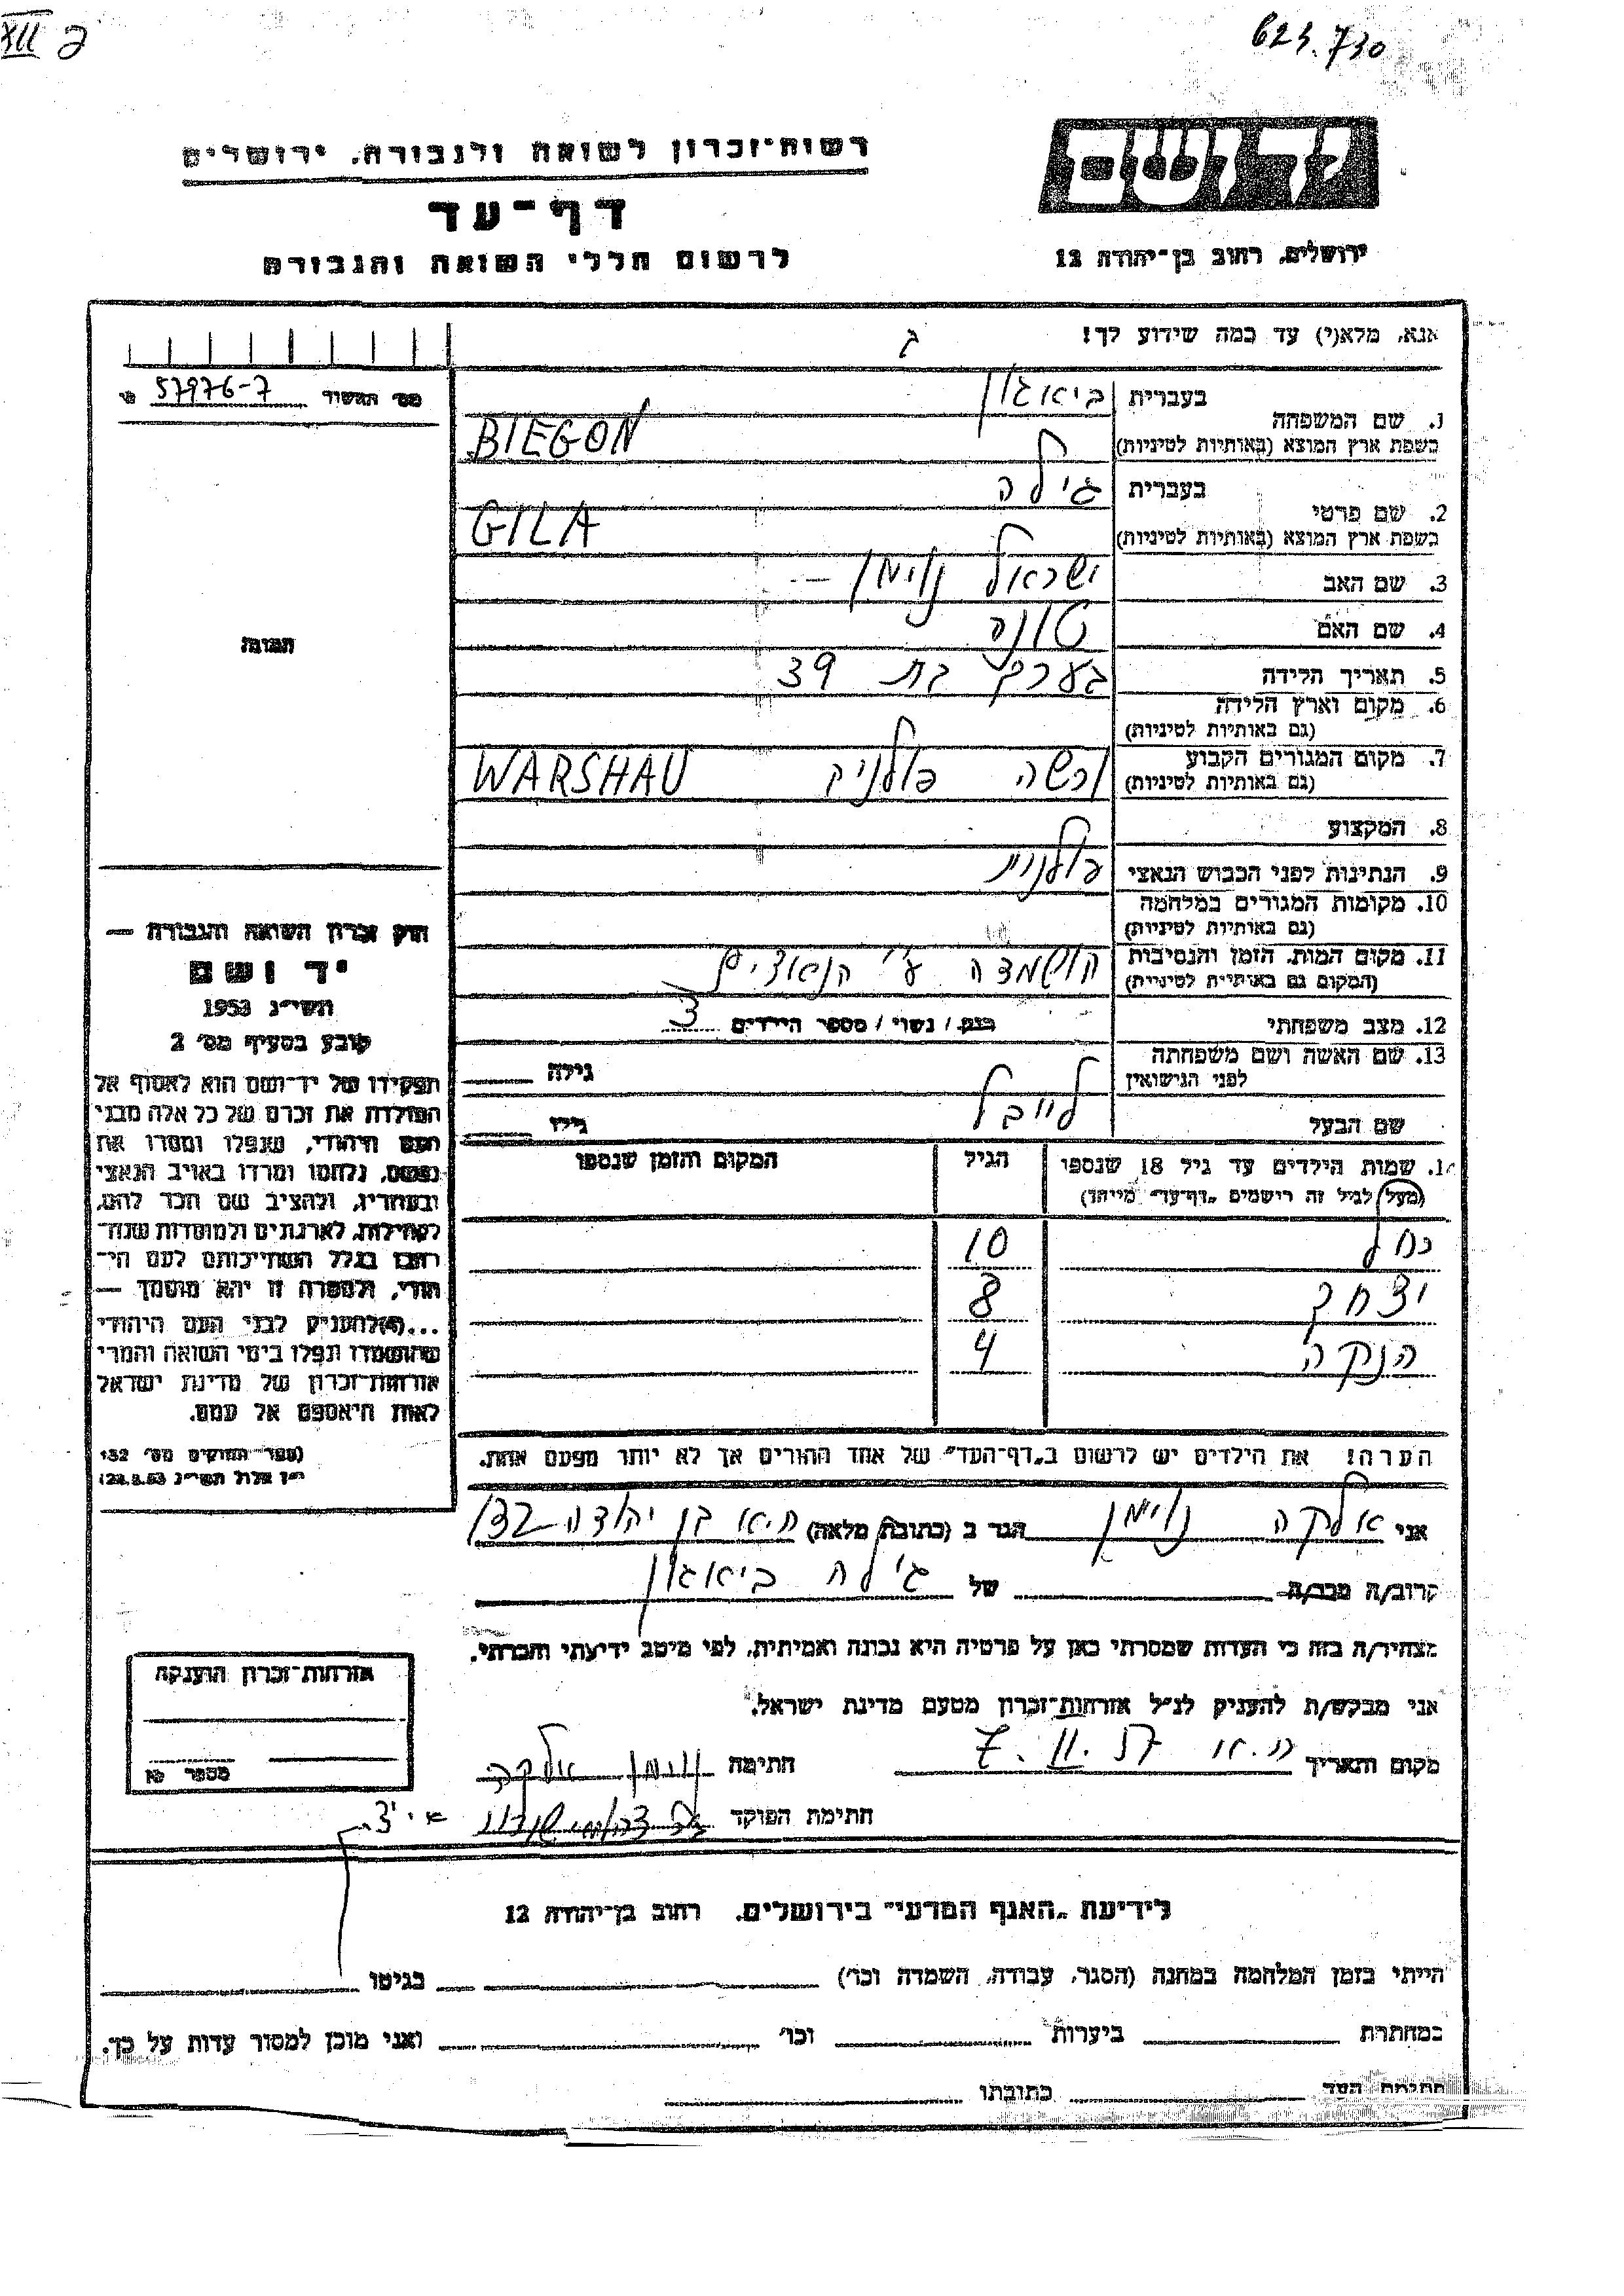 XIII ב
623.730
רשות-זכרון לשואה ולגבורה, ירושלים
יד ושם
דף-עד
לרשום חללי השואה והגבורה
ירושלים, רחוב בן-יהודה 12
אנא, מלא(י) עד כמה שידוע לך!
ג
מס׳ התשדר 57976-7
1. שם המשפחה בעברית ביאגון
בשפת ארץ המוצא (באותיות לטיניות) BIEGON
2. שם פרטי בעברית גילה
בשפת ארץ המוצא (באותיות לטיניות) GILA
3. שם האב ישראל נוימן —
4. שם האם טובה
5. תאריך הלידה בערך בת 39
6. מקום וארץ הלידה
(גם באותיות לטיניות)
7. מקום המגורים הקבוע ורשה פולניה WARSHAU
(גם באותיות לטיניות)
8. המקצוע
9. הנתינות לפני הכבוש הנאצי פולנית
10. מקומות המגורים במלחמה
(גם באותיות לטיניות)
11. מקום המות, הזמן והנסיבות הושמדה ע״י הנאצים
(המקום גם באותיות לטיניות)
12. מצב משפחתי רווק / נשוי / מספר הילדים 3
13. שם האשה ושם משפחתה
לפני הנישואין
גילה
שם הבעל לייבל גילו
14. שמות הילדים עד גיל 18 שנספו הגיל המקום והזמן שנספו
(מעל לגיל זה רישמים „דף-עד״ מייחד)
רחל 10
יצחק 8
הנקה 4
הערה! את הילדים יש לרשום ב„דף-העד״ של אחד ההורים אך לא יותר מפעם אחת.
התמונה
חוק זכרון השואה והגבורה —
יד ושם
תשי״ג 1953
קובע בסעיף מס׳ 2
תפקידו של יד-ושם הוא לאסוף אל
המולדת את זכרם של כל אלה מבני
העם היהודי, שנפלו ומסרו את
נפשם, נלחמו ומרדו באויב הנאצי
ובעוזריו, ולהציב שם וזכר להם,
לקהילות, לארגונים ולמוסדות שנח-
רבו בגלל השתייכותם לעם הי-
הודי, ולמטרה זו יהא מוסמך —
...(4) להעניק לבני העם היהודי
שהושמדו ונפלו בימי השואה והמרי
אזרחות-זכרון של מדינת ישראל
לאות היאספם אל עמם.
(ספר החוקים מס׳ 132
י״ז אלול תשי״ג 28.8.53)
אני אלקה נוימן הגר ב (כתובת מלאה) ת״א בן יהודה 132
קרוב/ה מכר/ה של גילה ביאגון
מצהיר/ה בזה כי העדות שמסרתי כאן על פרטיה היא נכונה ואמיתית, לפי מיטב ידיעתי והכרתי.
אני מבקש/ת להעניק לנ״ל אזרחות-זכרון מטעם מדינת ישראל.
מקום ותאריך ת.א. 7.II.57 חתימה נוימן אלקה
חתימת הפוקד
אזרחות-זכרון הוענקה
מספר
לידיעת „האגף המדעי״ בירושלים, רחוב בן-יהודה 12
הייתי בזמן המלחמה במחנה (הסגר, עבודה, השמדה וכו׳) בגיטו
במחתרת ביערות וכו׳ ואני מוכן למסור עדות על כך.
חתימת העד כתובתו